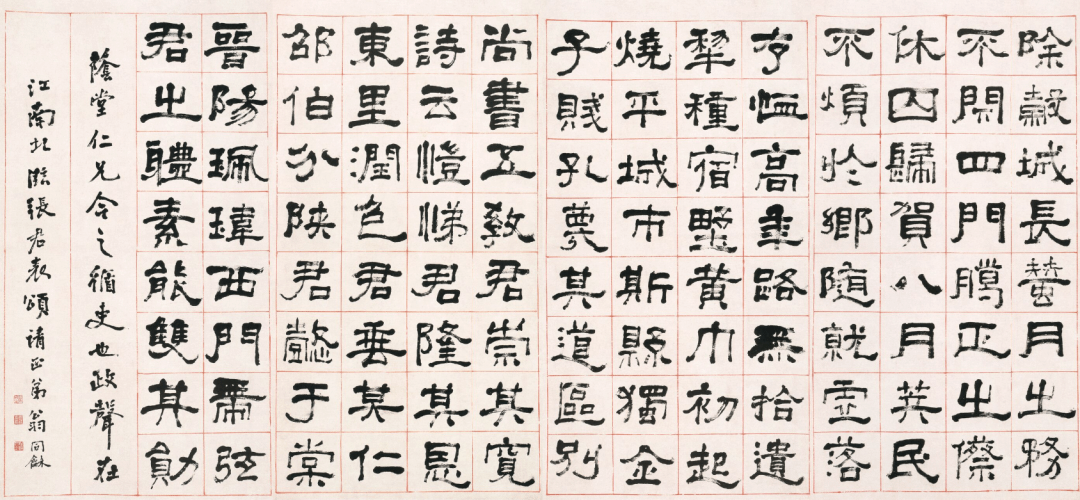 除穀城長蠶月之務
不閇四門臈正之僚
休囚歸賀八月筭民
不煩於鄉随就虛落
存恤高年路無拾遺
犂種宿壄黃巾初起
燒平城市斯縣獨全
子賤孔蔑其道區別
尚書五教君崇其寬
詩云愷悌君隆其恩
東里潤色君垂其仁
邵伯分陝君懿于棠
晉陽珮瑋西門帶弦
君之體素能雙其勛
蔭堂仁兄今之循吏也政聲在
江南北臨張君表頌請正弟翁同龢